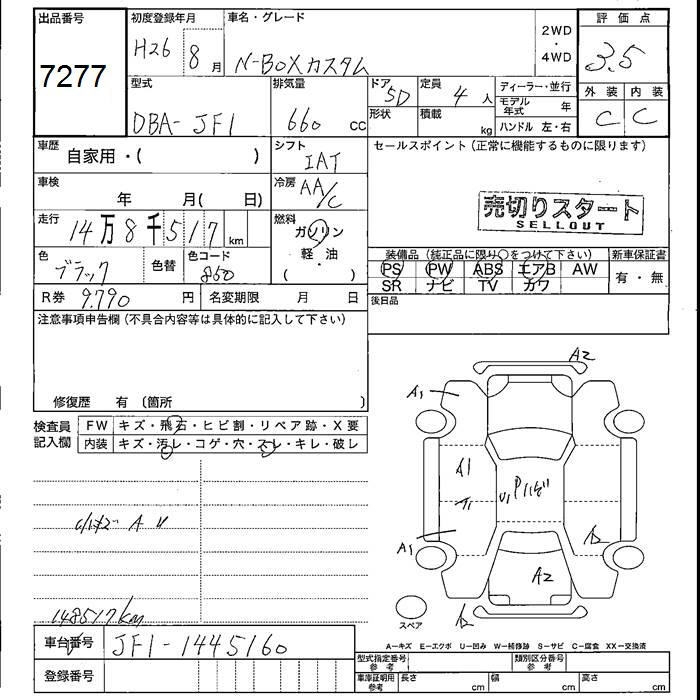 出品番号
7277
初度登録年月
H26 8月
車名・グレード
N-BOXカスタム
2WD
・
4WD
評価点
3.5
外装 内装
C C
型式
DBA- JF1
排気量
660 cc
ドア
5D
形状
定員
4人
積載
kg
ディーラー・並行
モデル年式 年
ハンドル 左・右
車歴
自家用・( )
シフト
IAT
セールスポイント (正常に機能するものに限ります)
車検
年 月( 日)
冷房
AA/C
売切りスタート
SELLOUT
走行
14万8千517 km
燃料
ガソリン
軽・油
( ・ )
色
ブラック
色替
色コード
850
装備品 (純正品に限り○をつけて下さい)
新車保証書
PS PW ABS エアB AW
SR ナビ TV カワ
有・無
R券 9.790 円
名変期限 月 日
後日品
注意事項申告欄 (不具合内容等は具体的に記入して下さい)
修復歴 有 〔箇所 〕
検査員
記入欄
FW キズ・飛石・ヒビ割・リペア跡・X要
内装 キズ・汚レ・コゲ・穴・スレ・キレ・破レ
A2
A1
A1
A1
A2
148517km
スペア
車台番号
JF1-1445160
登録番号
A−キズ E−エクボ U−凹み W−補修跡 S−サビ C−腐食 XX−交換済
型式指定番号
参考
類別区分番号
参考
車庫証明用
参考
長さ cm
幅 cm
高さ cm